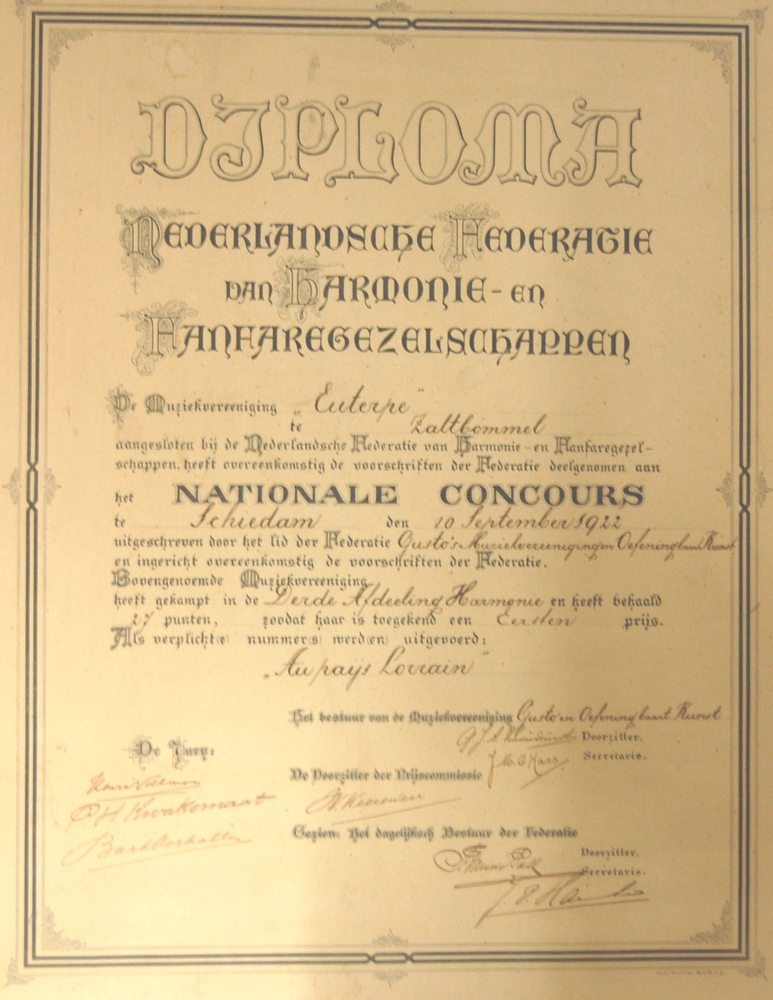 DIPLOMA
NEDERLANDSCHE FEDERATIE
VAN HARMONIE- EN
FANFAREGEZELSCHAPPEN
De Muziekvereeniging „Euterpe"
te Zaltbommel
aangesloten bij de Nederlandsche Federatie van Harmonie- en Fanfaregezel-
schappen, heeft overeenkomstig de voorschriften der Federatie deelgenomen aan
het NATIONALE CONCOURS
te Schiedam den 10 September 1922
uitgeschreven door het lid der Federatie Gusto's Muziekvereeniging en Oefening baart Kunst
en ingericht overeenkomstig de voorschriften der Federatie.
Bovengenoemde Muziekvereeniging
heeft gekampt in de Derde Afdeeling Harmonie en heeft behaald
27 punten, zoodat haar is toegekend een Eersten prijs.
Als verplicht(e) nummer(s) werd(en) uitgevoerd:
„Au pays Lorrain"
Het bestuur van de Muziekvereeniging Gusto en Oefening baart Kunst
Voorzitter.
De Jury:
Secretaris.
De Voorzitter der Prijscommissie
Gezien: Het dagelijksch Bestuur der Federatie
Voorzitter.
Secretaris.